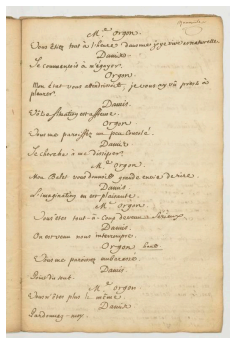 Mde Orgon.
Vous étiez tout à l'heure dans une joye vive et naturelle
Damis.
Je commençois à m'égayer.
Orgon.
Mon état vous attendrissoit, je vous ay vû pret à
pleurer
Damis.
Votre situation est affreuse.
Orgon
Vous me paroissez un peu Consolé.
Damis
Je cherche à me dissiper.
Mde Orgon.
Mon Balet vous donnoit grande envie de rire
Damis
L'imagination en est plaisante
Mde Orgon.
Vous êtes tout-à-Coup devenu Sérieux.
Damis.
On est venu nous interrompre.
Orgon
Vous me paroissez embarassé
Damis.
Point du tout.
Mde Orgon
Vous n'êtes plus le même
Damis
Pardonnez-moy.